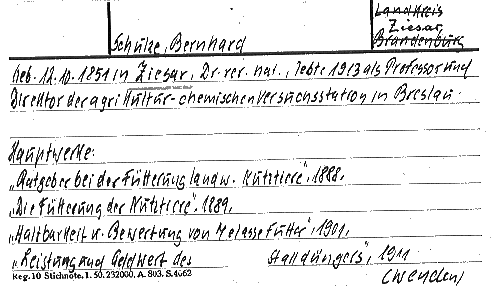 Landkreis
Ziesar
Brandenburg
Schulze, Bernhard
Geb. 12.10.1851 in Ziesar, Dr. rer. nat., lebte 1913 als Professor und
Direktor der agrikultur-chemischen Versuchsstation in Breslau.
Hauptwerke:
"Ratgeber bei der Fütterung landw. Nutztiere", 1888.
"Die Fütterung der Nutztiere", 1889.
"Haltbarkeit u. Bewertung von Melassefutter", 1901.
"Leistung und Geldwert des Stalldüngers", 1911
Reg. 10 Stichnote. 1. 50. 232000. A. 803. S. 4062
(Wenden)